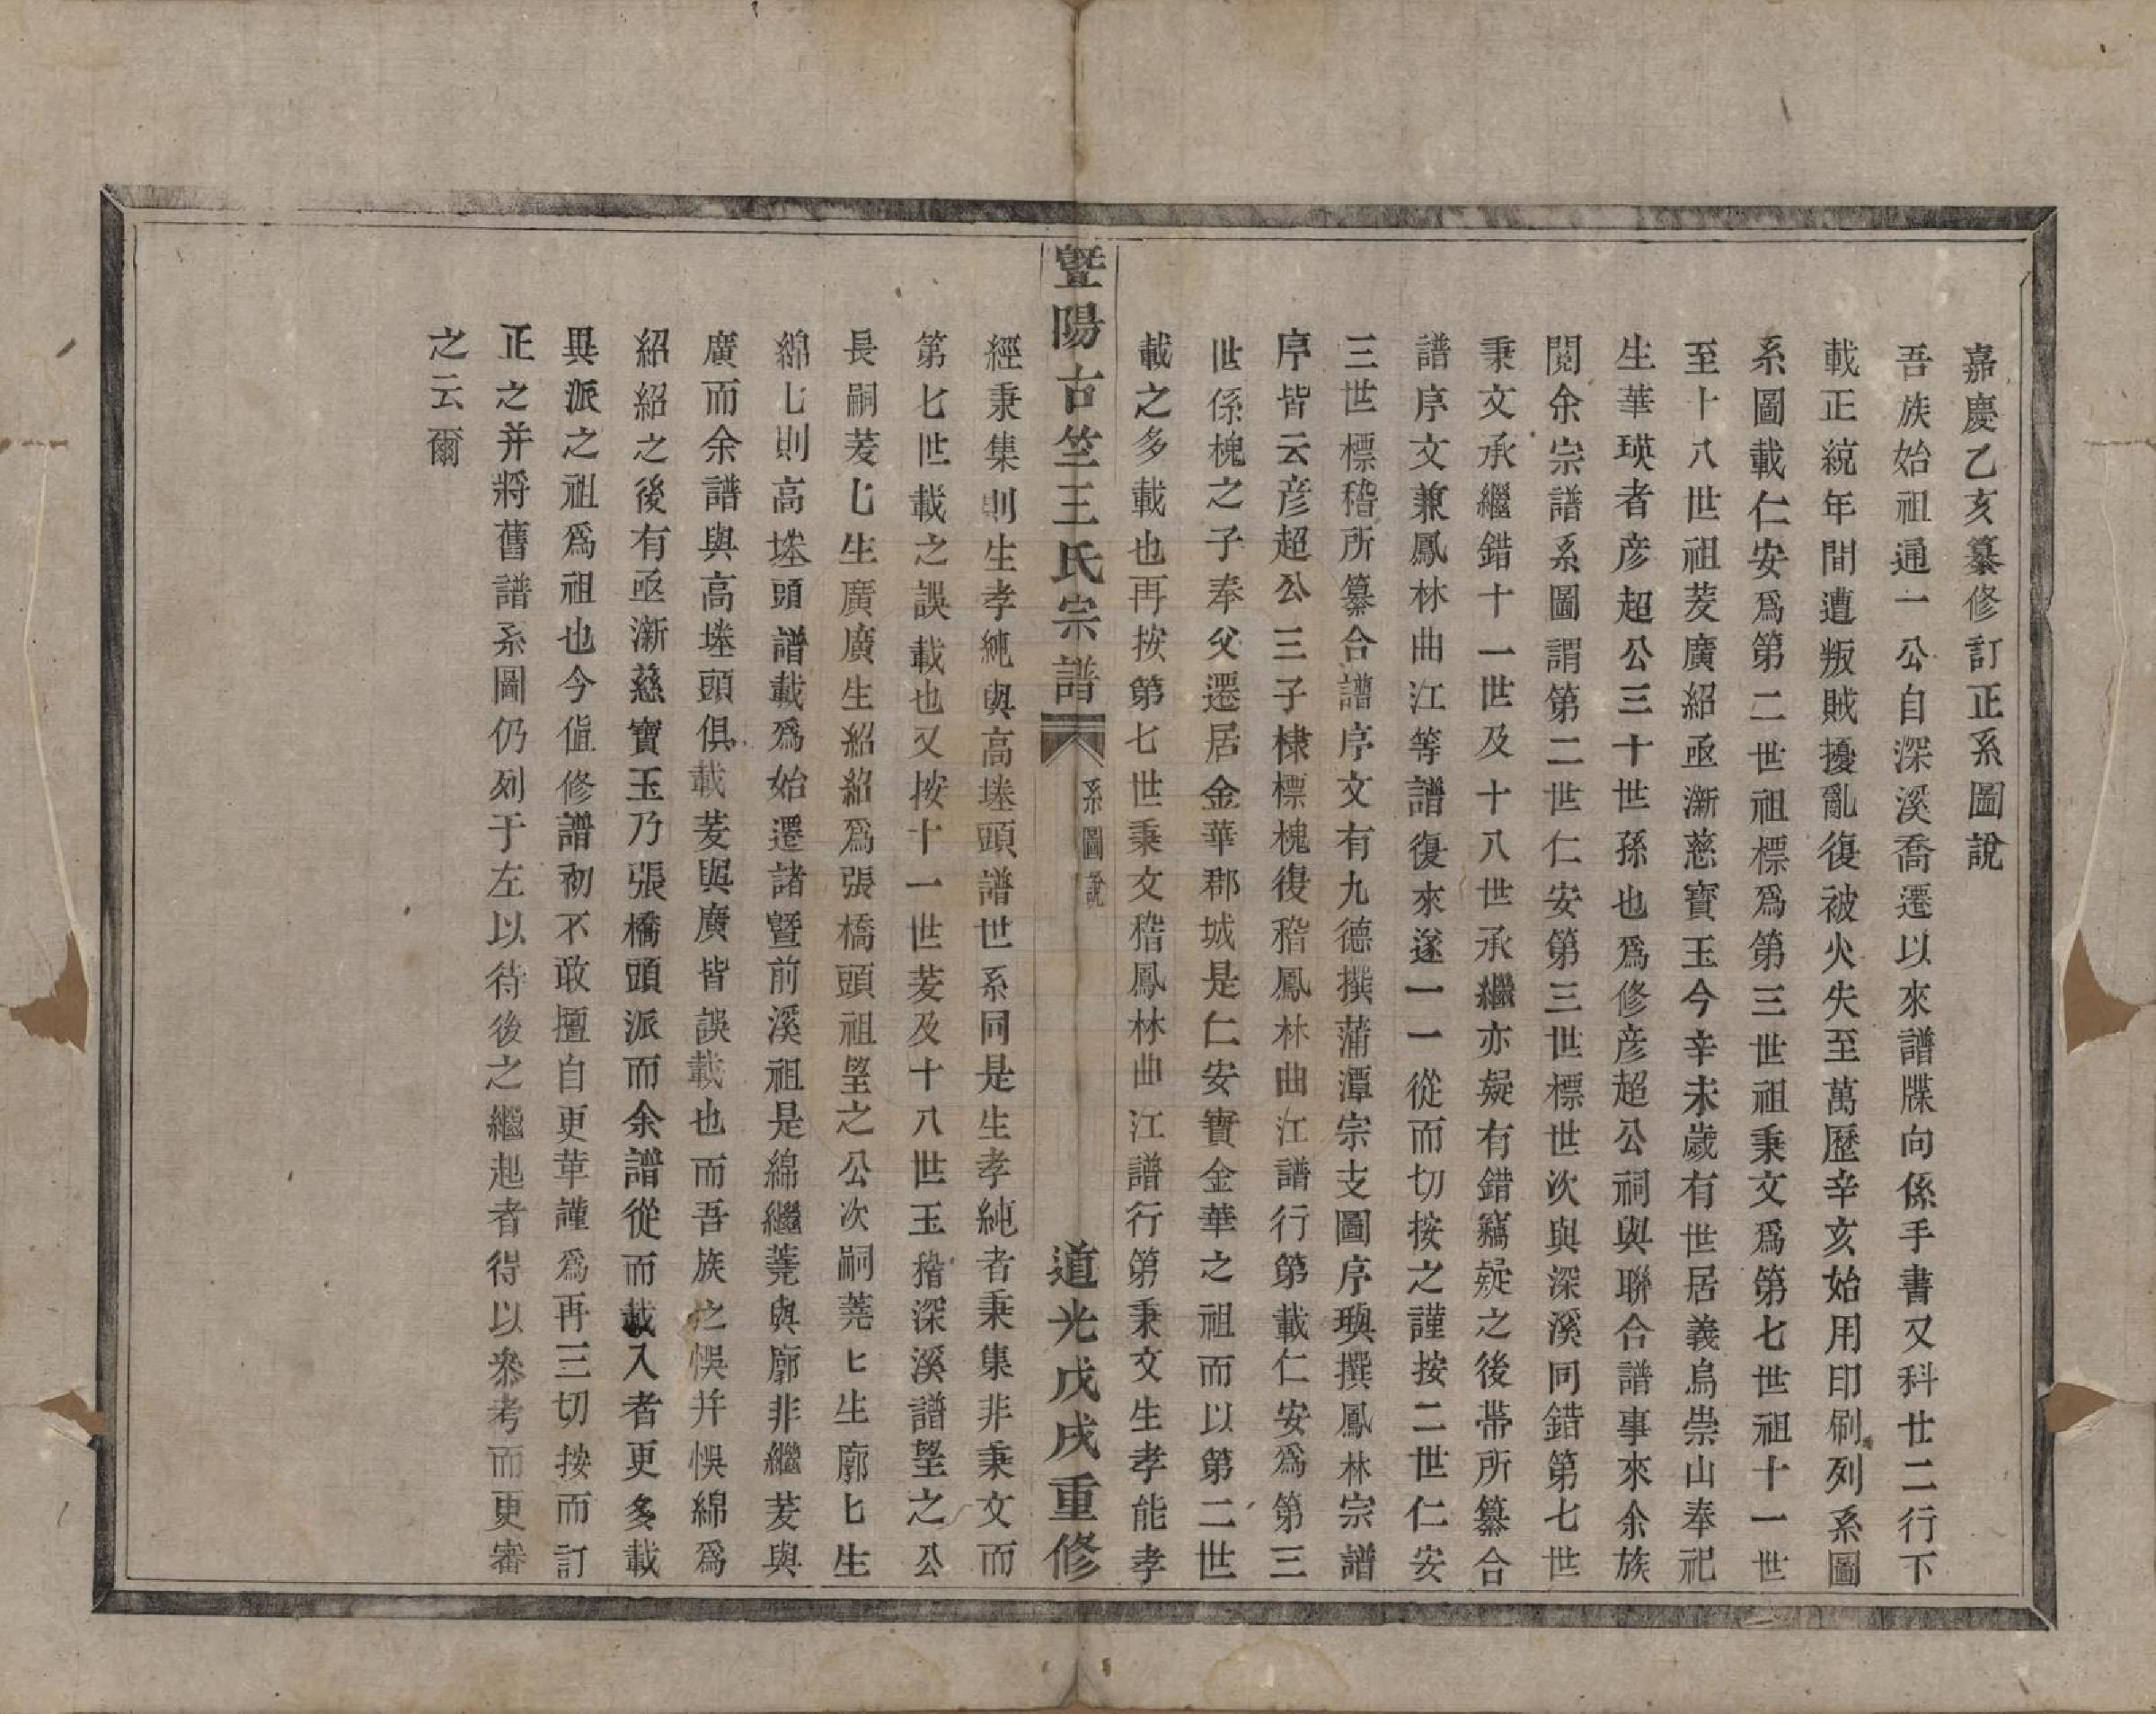 嘉慶乙亥纂修訂正系圖說
吾族始祖通一公自深溪喬遷以來譜牒向係手書又科廿二行下
載正綂年間遭叛賊擾亂復被火失至萬歷辛亥始用印刷列系圖
系圖載仁安爲第二世祖標爲第三世祖秉文爲第七世祖十一世
至十八世祖茇廣紹亟漸慈寶玉今辛未歲有世居義烏崇山奉祀
生華瑛者彦超公三十世孫也爲修彦超公祠與聯合譜事來余族
閱余宗譜系圖謂第二世仁安第三世標世次與深溪同錯第七世
秉文承繼錯十一世及十八世承繼亦疑有錯竊疑之後帶所纂合
譜序文兼鳳林曲江等譜復來遂一一從而切按之謹按二世仁安
三世標稽所纂合譜序文有九德撰蒲潭宗支圖序璵撰鳳林宗譜
序皆云彦超公三子棣標槐復稽鳳林曲江譜行第載仁安爲第三
世係槐之子奉父遷居金華郡城是仁安實金華之祖而以第二世
載之多載也再按第七世秉文稽鳳林曲江譜行第秉文生孝能孝
暨陽古竺王氏宗譜 系圖說 道光戊戌重修
經秉集則生孝純與高塂頭譜世系同是生孝純者秉集非秉文而
第七世載之誤載也又按十一世茇及十八世玉稽深溪譜堲之公
長嗣茇七生廣廣生紹紹爲張橋頭祖堲之公次嗣蕘七生廓七生
綿七則高塂頭譜載爲始遷諸暨前溪祖是綿繼蕘與廓非繼茇與
廣而余譜與高塂頭俱載茇與廣皆誤載也而吾族之悞并悞綿爲
紹紹之後有亟漸慈寶玉乃張橋頭派而余譜從而載入者更多載
異派之祖爲祖也今値修譜初不敢擅自更革謹爲再三切按而訂
正之并將舊譜系圖仍列于左以待後之繼起者得以叅考而更審
之云爾